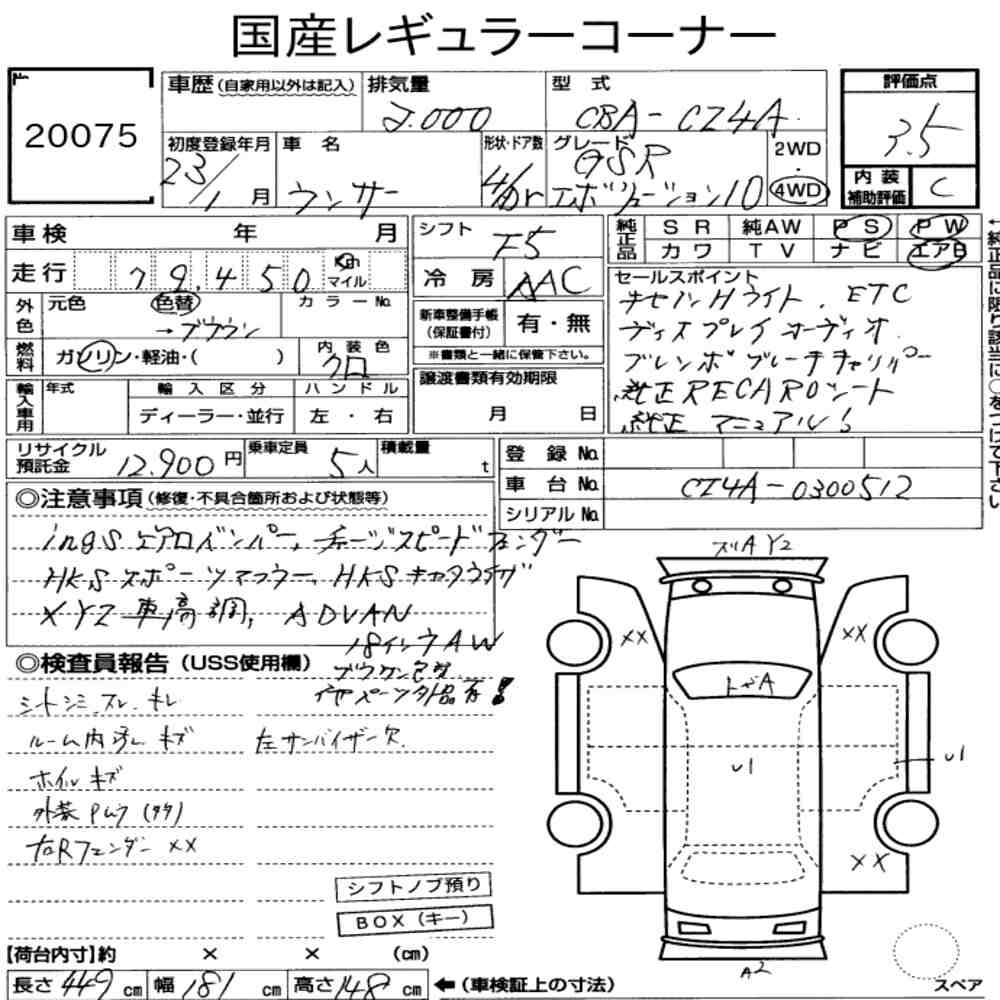 国産レギュラーコーナー
20075
車歴(自家用以外は記入)
排気量
2.000
型式
CBA-CZ4A
評価点
3.5
初度登録年月
23/1月
車名
ランサー
形状・ドア数
4/Dr
グレード
GSR
エボリューション10
2WD
・
4WD
内装
補助評価
C
車検 年 月
シフト
F5
純正品
SR 純AW PS PW
カワ TV ナビ エアB
←純正品に限り該当に○をつけて下さい
走行 79,450 Km
マイル
冷房 AAC
セールスポイント
キセノンHライト. ETC
ディスプレイオーディオ
ブレンボブレーキキャリパー
純正RECAROシート
純正マニュアル
外色
元色 色替 カラーNo.
→ブラウン
新車整備手帳
(保証書付)
有・無
※書類と一緒に保管下さい。
燃料
ガソリン・軽油・( )
内装色
クロ
譲渡書類有効期限
月 日
輸入車用
年式 輸入区分 ハンドル
ディーラー・並行 左・右
リサイクル
預託金
12.900円
乗車定員
5人
積載量
t
登録No.
車台No. CZ4A-0300512
シリアルNo.
◎注意事項(修復・不具合箇所および状態等)
ingSエアロバンパー, チャージスピードフェンダー
HKSスポーツマフラー, HKSキャタライザ
XYZ車高調, ADVAN
18インチAW
◎検査員報告(USS使用欄)
ブラウン色替
シートシミ スレ キレ
ルーム内汚レ キズ 左サンバイザー欠
ホイル キズ
外装Pムラ(タタ)
右Rフェンダー XX
シフトノブ預り
BOX(キー)
【荷台内寸】約 × × (cm)
長さ449cm 幅181cm 高さ148cm ←(車検証上の寸法)
AY2
XX XX
トビA
U1 U1
XX
A2
スペア